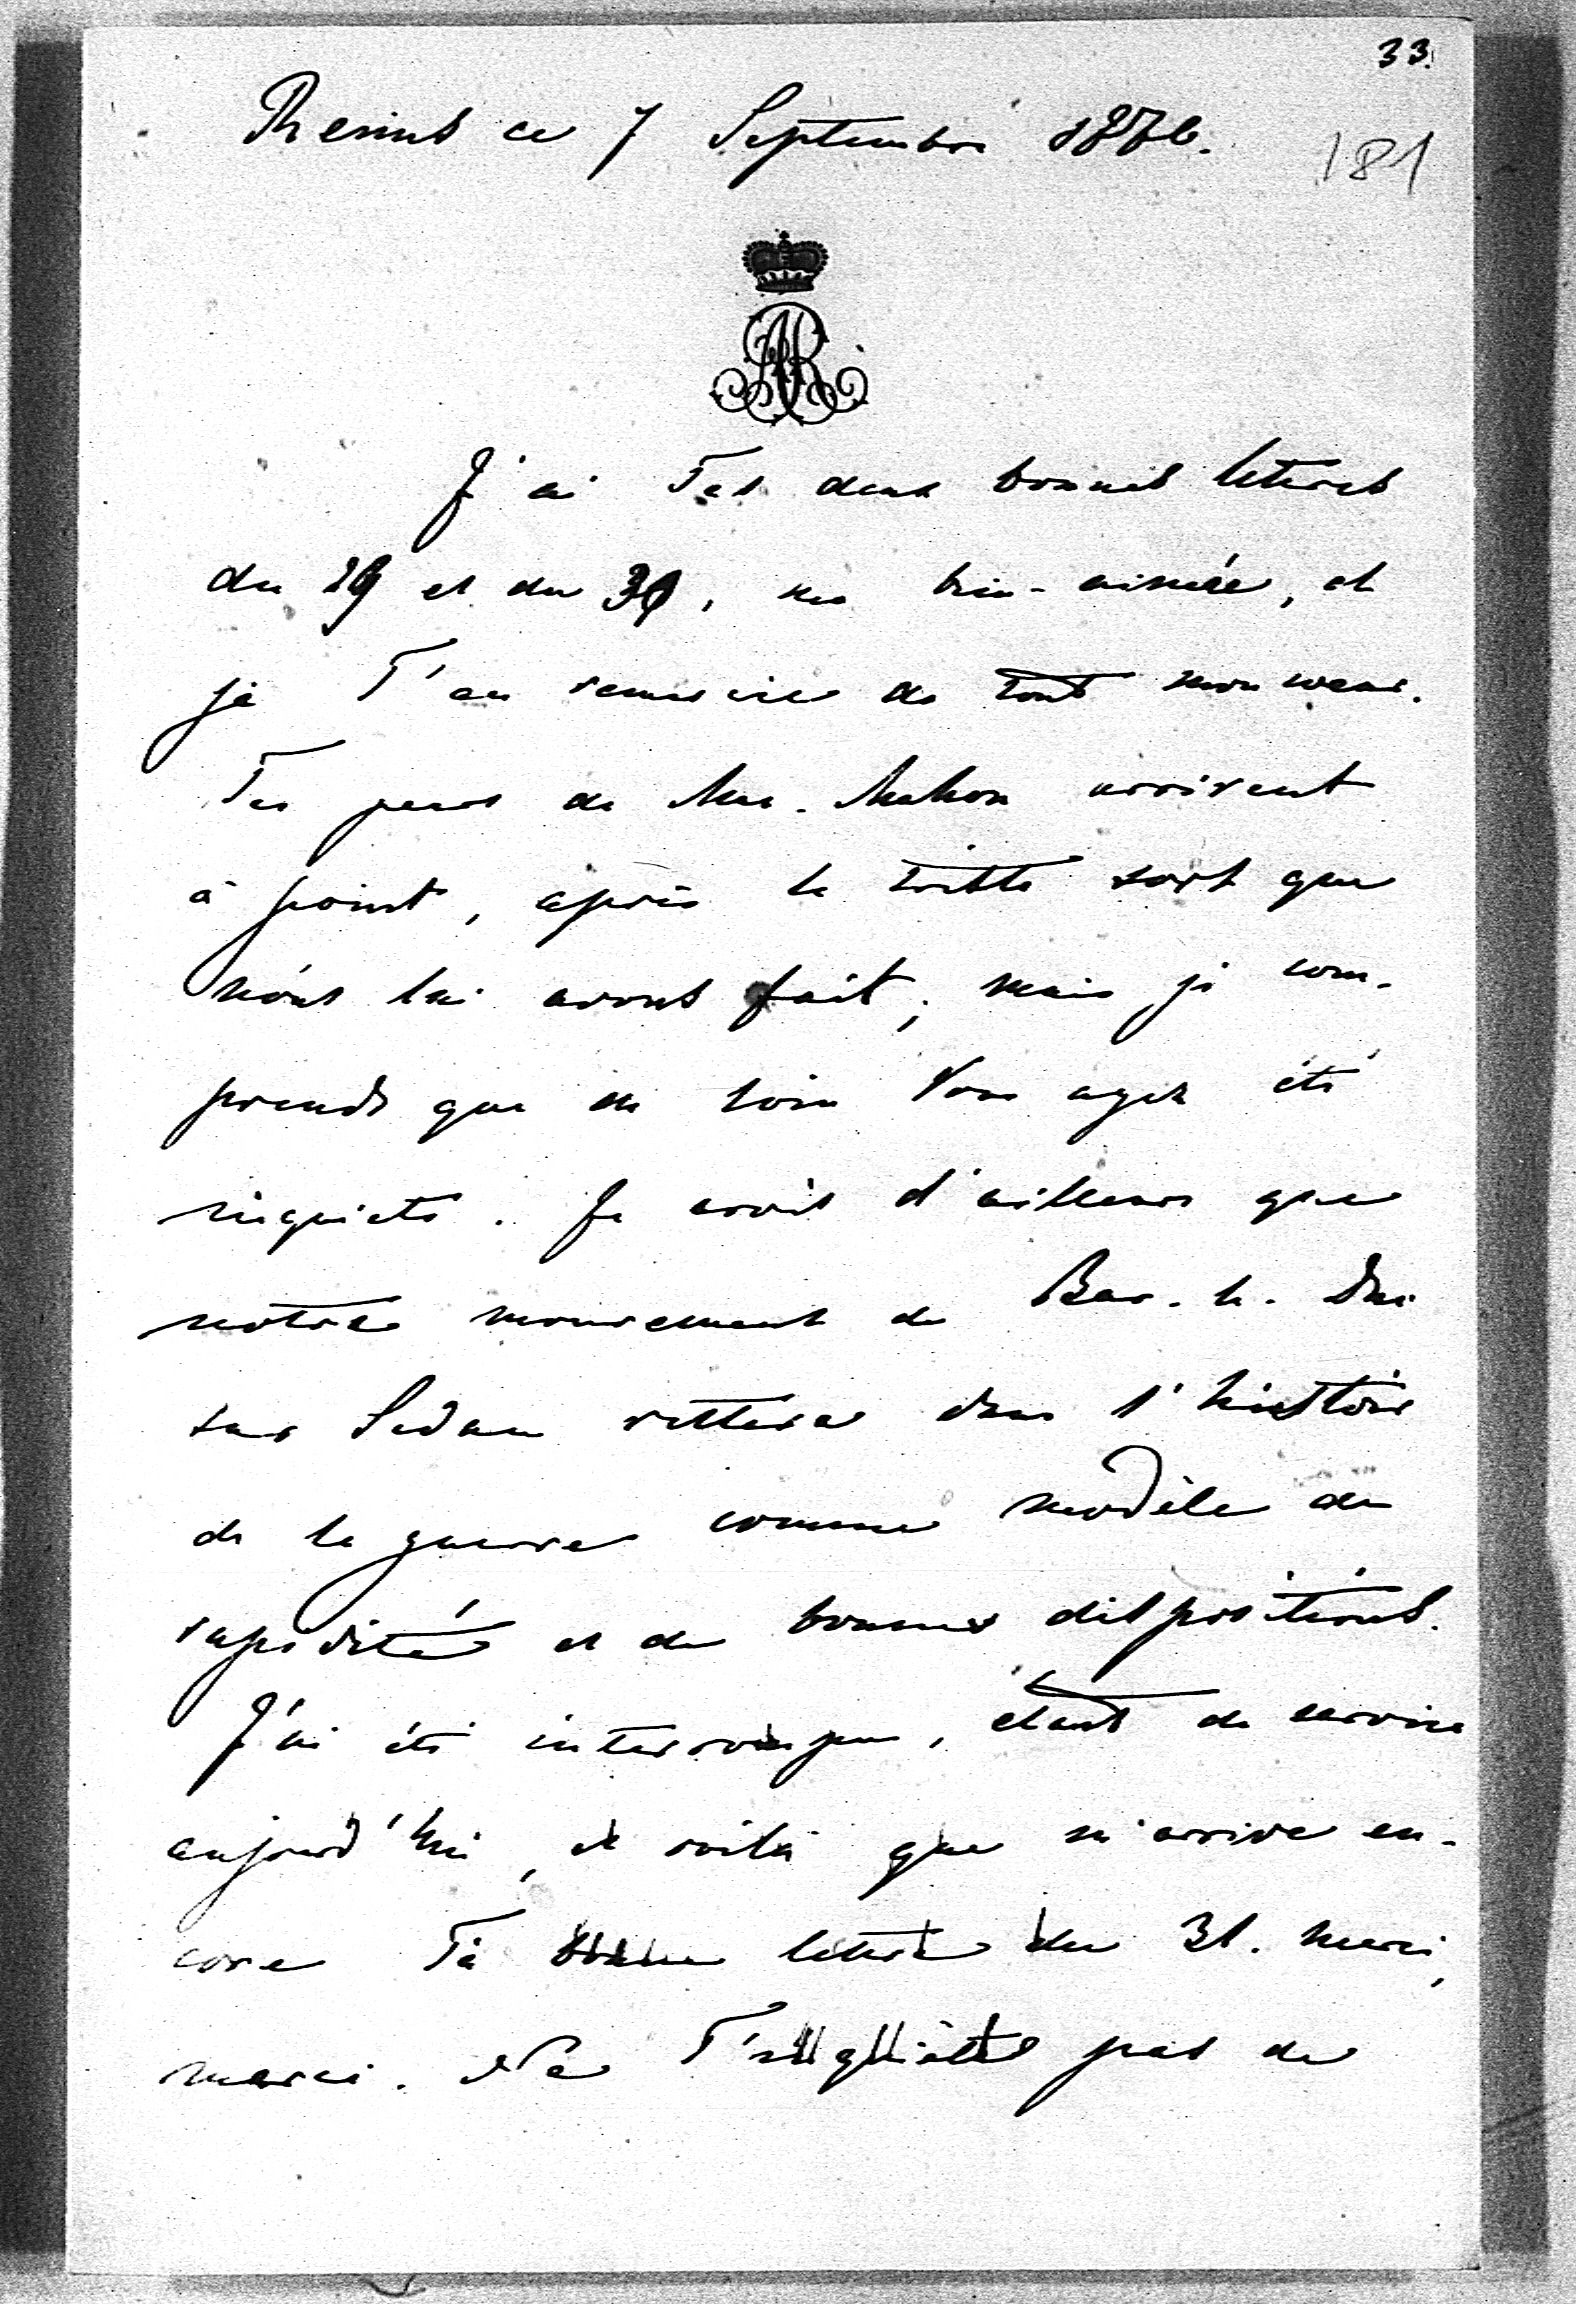 33.
Rheims ce 7 Septembre 1870.
181
AR
J'ai Tes deux bonnes lettres
du 29 et du 30, ma bien-aimée, et
je T'en remercie de tout mon coeur.
Tes peurs de Mac-Mahon arrivent
à point, après le triste sort que
nous lui avons fait; mais je com-
prends que de loin Vous ayez été
inquiets. Je crois d'ailleurs que
notre mouvement de Bar-le-Duc
sur Sedan restera dans l'histoire
de la guerre comme modèle de
rapidité et de bonnes dispositions.
J'ai été interrompu, étant de service
aujourd'hui, et voilà que m'arrive en-
core Ta bonne lettre du 31. merci,
merci. Ne T'inquiètes pas de